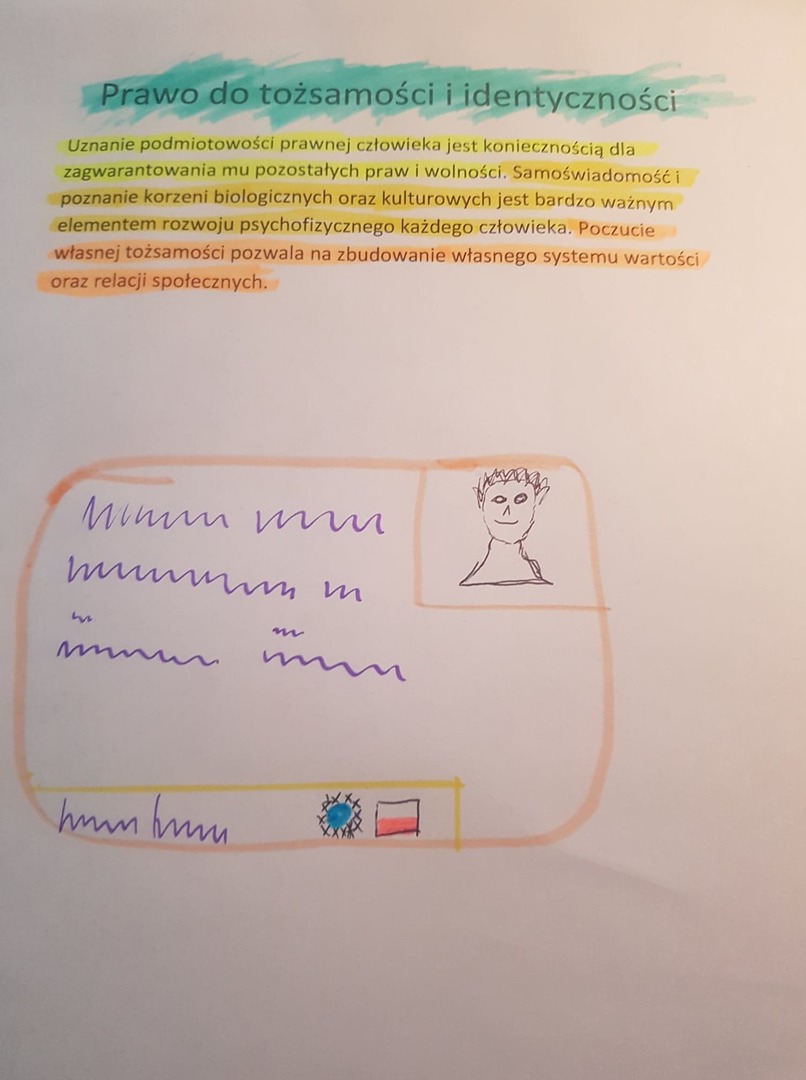 Prawo do tożsamości i identyczności
Uznanie podmiotowości prawnej człowieka jest koniecznością dla
zagwarantowania mu pozostałych praw i wolności. Samoświadomość i
poznanie korzeni biologicznych oraz kulturowych jest bardzo ważnym
elementem rozwoju psychofizycznego każdego człowieka. Poczucie
własnej tożsamości pozwala na zbudowanie własnego systemu wartości
oraz relacji społecznych.